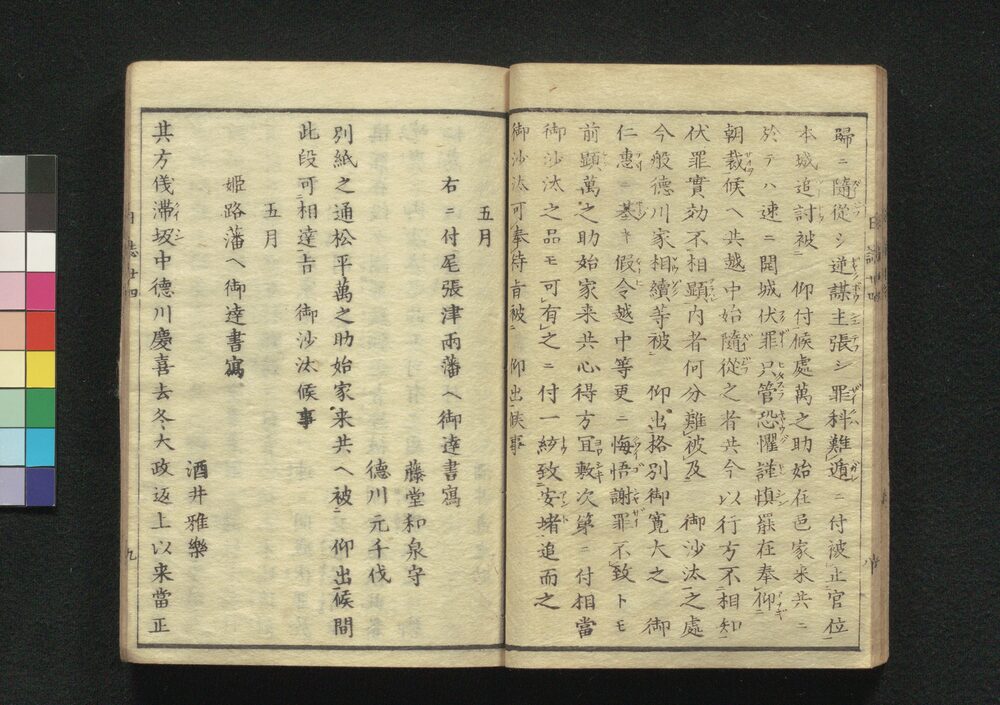 歸ニ隨從シ逆謀主張シ罪科難遁ニ付被止官位
本城追討被　仰付候處萬之助始在邑家来共ニ
於テハ速ニ開城伏罪只管恐懼謹慎罷在奉仰
朝裁候ヘ共越中始隨從之者共今以行方不相知
伏罪實効不相顕内者何分難被及　御沙汰之處
今般德川家相續等被　仰出格別御寛大之　御
仁惠ニ基キ假令越中等更ニ悔悟謝罪不致トモ
前顕萬之助始家来共心得方冝敷次第ニ付相當
御沙汰之品モ可有之ニ付一紛致安堵追而之
御沙汰可奉待旨被　仰出候事
五月
右ニ付尾張津両藩ヘ御達書寫
藤堂和泉守
德川元千代
別紙之通松平萬之助始家来共ヘ被　仰出候間
此段可相達吉　御沙汰候事
五月
姫路藩ヘ御達書寫
酒井雅樂
其方儀滞坂中德川慶喜去冬大政返上以来當正
日誌廿四
九